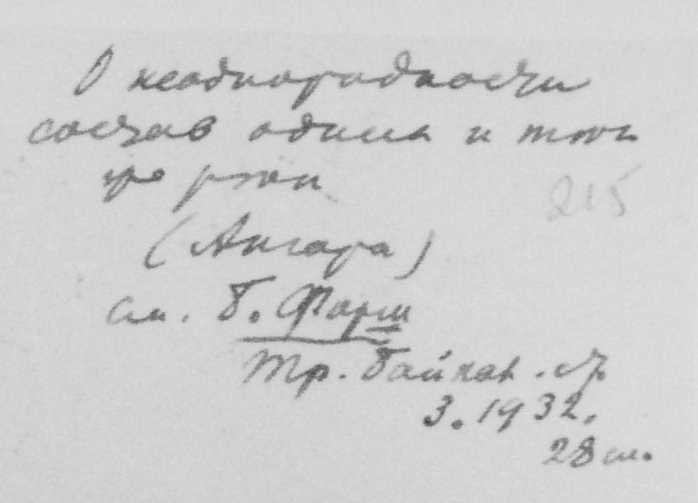 О неоднородности
состав одной и той
же реки
215
(Ангара)
см. Б. Фарш
Тр. Байкал. ст.
3. 1932.
28 см.